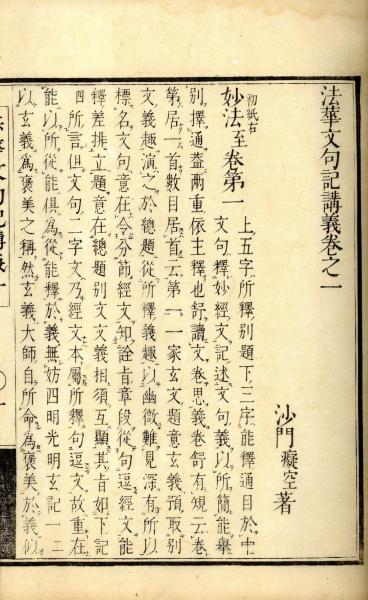 法華文句記講義卷之一
沙門癡空著
初紙右
妙法至卷第一
上五字所釋別題下三字能釋通目於中
文句釋妙經文記述文句義以所簡能舉
別擇通蓋兩重依主釋也舒讀文卷思義卷舒有規云卷
第居一首數目居首云第一一家玄文題意玄義預取別
文義趣演之於總題從所釋義趣以幽微難見深有所以
標名文句意在令分節經文知詮旨章段從句逗經文能
釋差排立題意在總題別文文義相須互顯其旨如下記
四所言但文句二字文乃經文本屬所釋句逗文故重在
能以所從能俱為從能釋於義無妨四明光明玄記一二
以玄義為褒美之稱然玄義大師自所命為褒美於義似